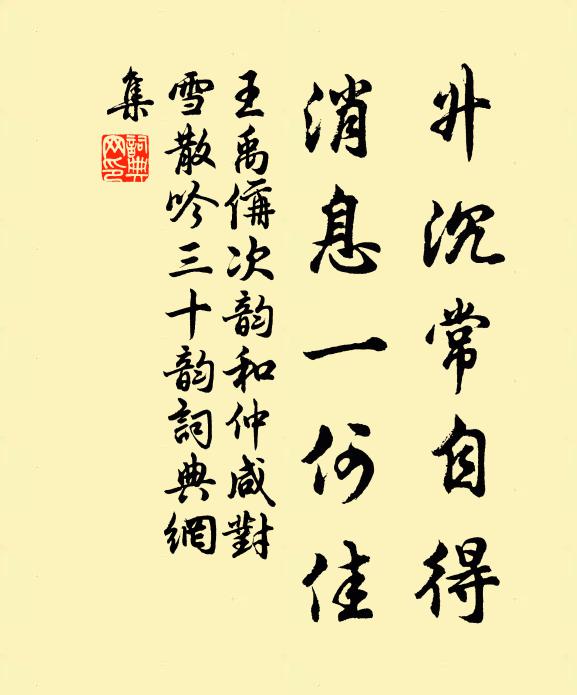 升沉常自得
消息一何佳
王禹偁次韵和仲咸對
雪散吟三十韵詞典網
集
詞典
网印